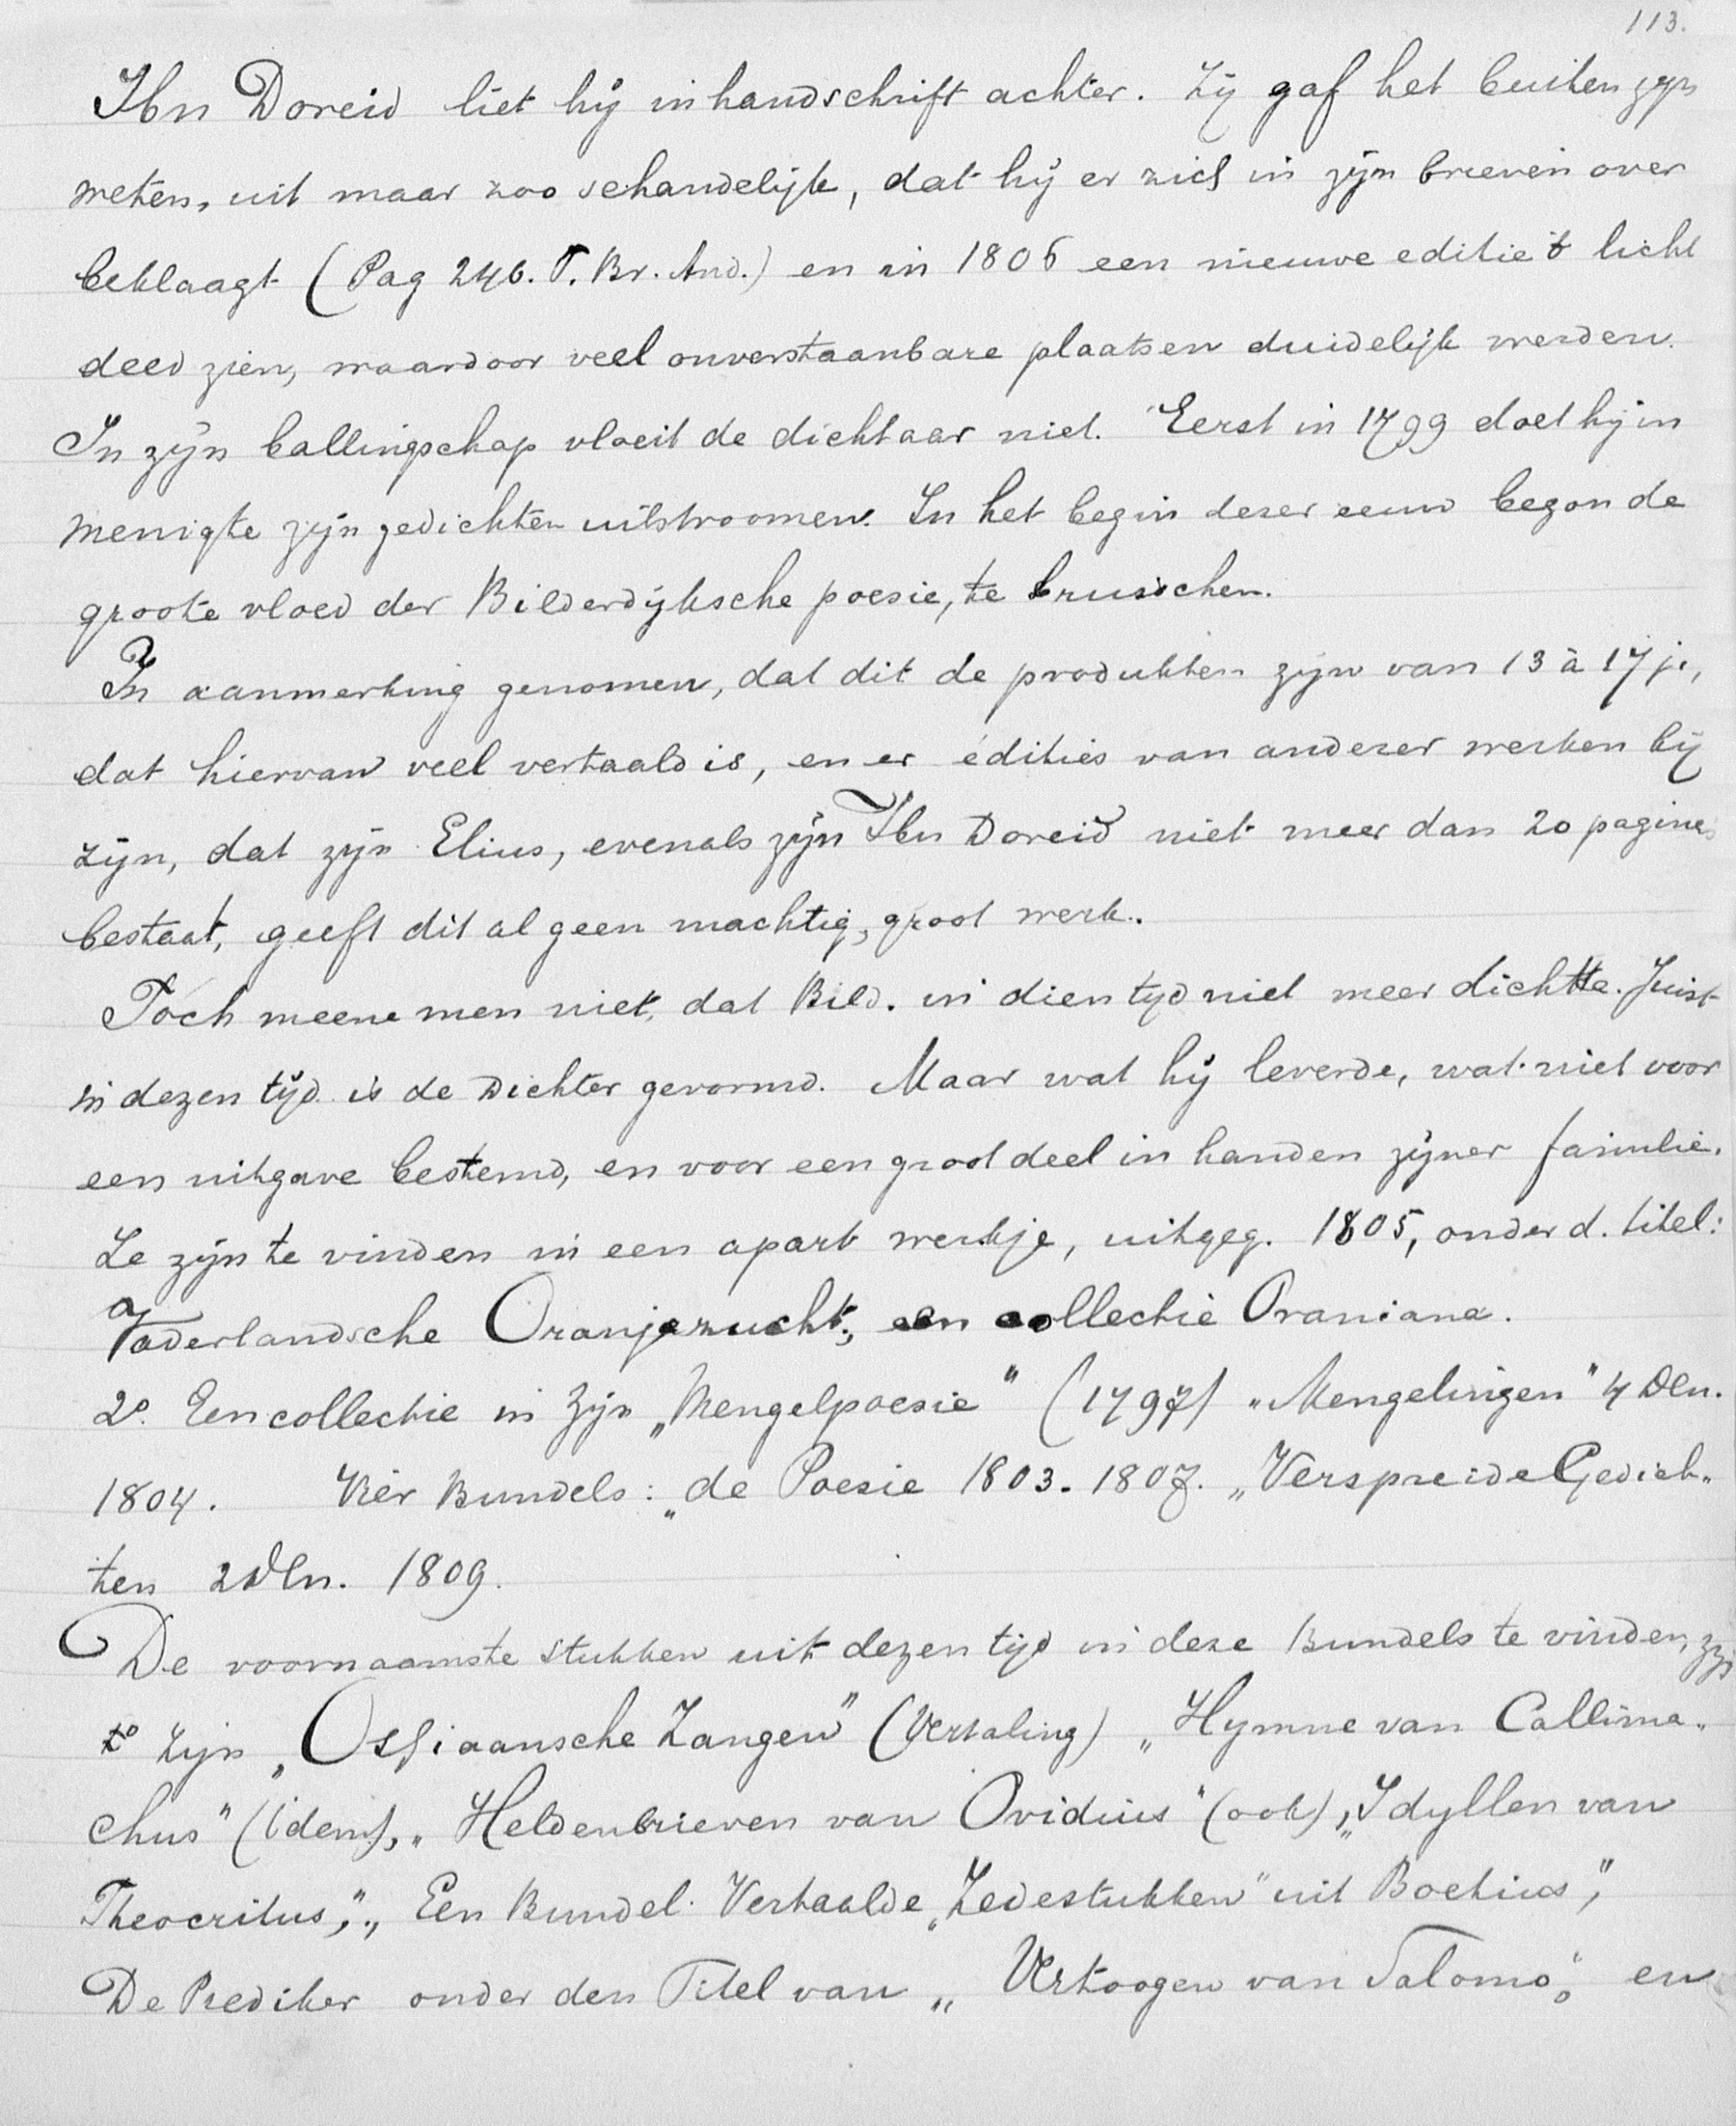 113.
Ibn Doreid liet hij in handschrift achter. Zij gaf het buiten zijn
weten, uit maar zoo schandelijk, dat hij er zich in zijn brieven over
beklaagt (Pag 246. T. Br. And.) en in 1806 een nieuwe editie 't licht
deed zien, waardoor veel onverstaanbare plaatsen duidelijk werden.
In zijn ballingschap vloeit de dichtaar niet. Eerst in 1799 doet hij in
menigte zijn gedichten uitstroomen. In het begin dezer eeuw begon de
groote vloed der Bilderdijksche poesie, te bruischen.
In aanmerking genomen, dat dit de produkten zijn van 13 à 17 j.,
dat hiervan veel vertaald is, en er edities van anderer werken bij
zijn, dat zijn Elius, evenals zijn Ibn Doreid niet meer dan 20 pagines
bestaat, geeft dit al geen machtig, groot werk.
Toch meene men niet, dat Bild. in dien tijd niet meer dichtte. Juist
in dezen tijd is de Dichter gevormd. Maar wat hij leverde, wat niet voor
een uitgave bestemd, en voor een groot deel in handen zijner familie.
Ze zijn te vinden in een apart werkje, uitgeg. 1805, onder d. titel:
Vaderlandsche Oranjezucht; een collectie Oraniana.
2º. Een collectie in zijn „Mengelpoesie" (1797) „Mengelingen" 4 Dln.
1804. Vier Bundels: „de Poesie 1803-1807. „Verspreide Gedich„
ten 2 Dln. 1809.
De voornaamste stukken uit dezen tijd in deze Bundels te vinden, zijn
1º zijn „Ossiaansche Zangen" (Vertaling) „Hymne van Callima„
chus" (idem), „Heldenbrieven van Ovidius" (ook), „Idyllen van
Theocritus," „Een Bundel Vertaalde „Zedestukken" uit Boetius",
De Prediker onder den Titel van „Vertoogen van Salomo", en